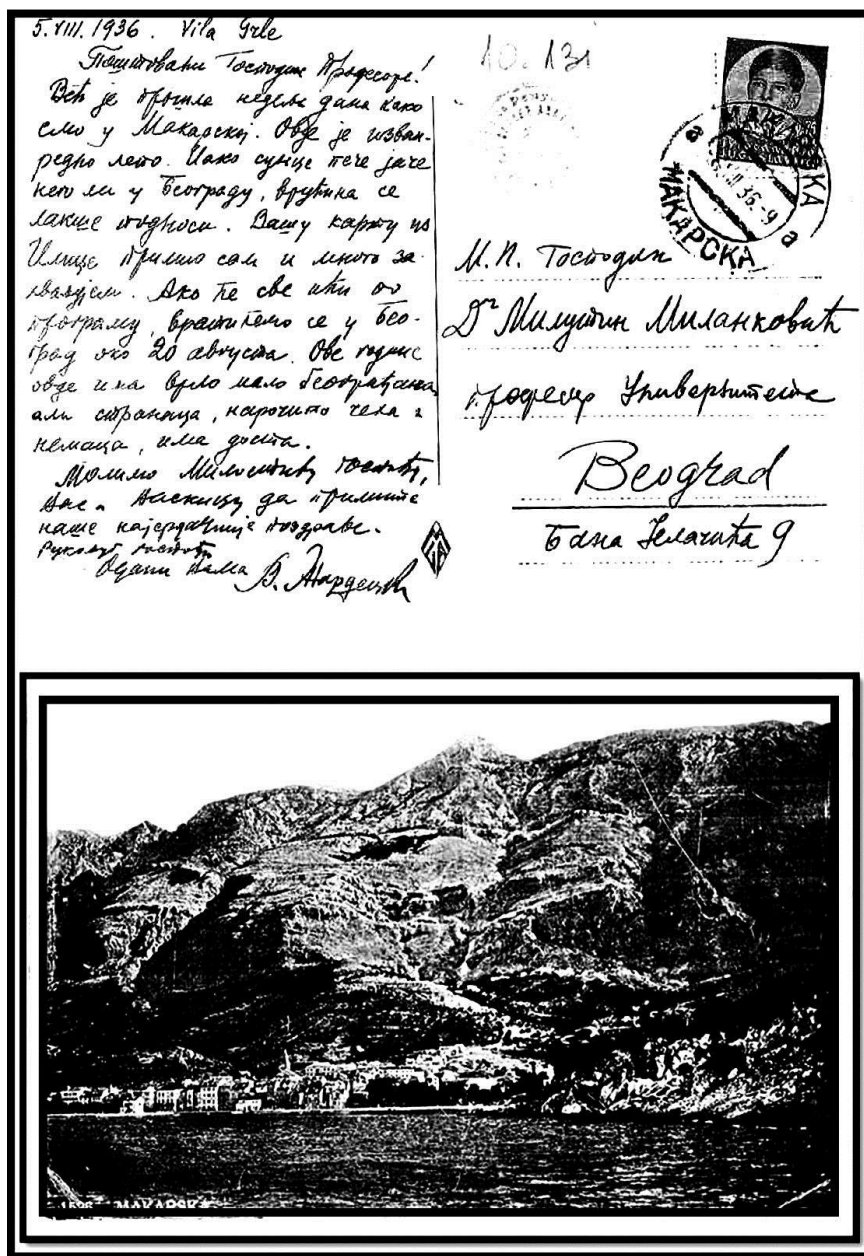 5. VIII. 1936. Vila Grle
Поштовани Господине Професоре!
Већ је прошла недеља дана како
смо у Макарској. Овде је изван-
редно лето. Иако сунце пече јаче
него ли у Београду, врућина се
лакше подноси. Вашу карту из
примио сам и много за-
хваљујем. Ако ће све ићи по
програму, вратићемо се у Бео-
град око 20 августа. Ове године
овде има врло мало београђана,
али странаца, нарочито чеха и
немаца, има доста.
Молимо Милостиву госпођу,
Вас и Васкицу да примите
наше најсрдачније поздраве.
Рукољуб госпођи
Одани Вама В. Жардецки
10. 131
МАКАРСКА
а VIII 36.-9 а
МАКАРСКА
М.П. Господин
Dr Милутин Миланковић
професор Универзитета
Beograd
Бана Јелачића 9
1526 MAKARSKA